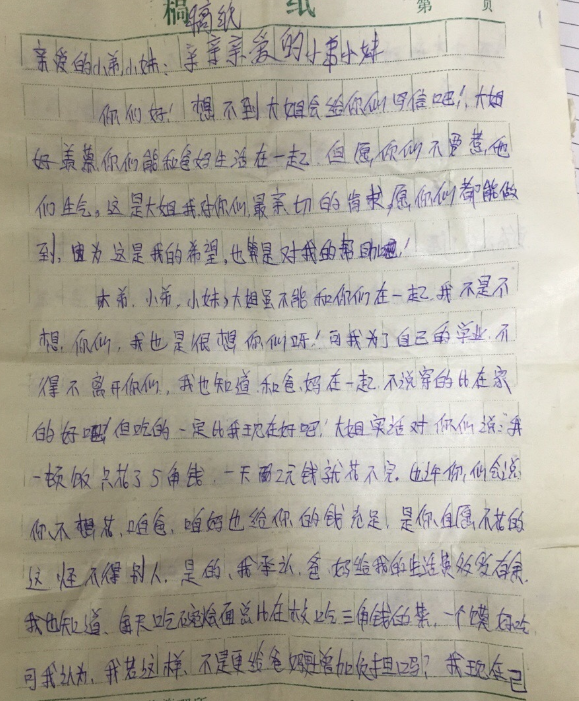 稿 纸 第 页
稿纸
亲爱的小弟小妹: 亲亲亲爱的小弟小妹
你们好! 想不到大姐会给你们回信吧!大姐
好羡慕你们能和爸妈生活在一起.但愿,你们不要惹他
们生气。这是大姐我对你们最亲切的肯求,愿你们都能做
到,因为这是我的希望,也算是对我的帮助啦!
大弟,小弟,小妹,大姐虽不能和你们在一起.我不是不
想,你们,我也是很想你们呀!可我为了自己的学业.不
得不离开你们,我也知道和爸.妈在一起.不说穿的比在家
的好吧 但吃的一定比我现在好吧!大姐实话对你们说:我
一顿饭只花了5角钱,一天两2元钱就花不完.也许你,们会说
你.不想花.咱爸.咱妈也给你的钱充足.是你自愿不花的
这怪不得别人,是的,我承认,爸.妈给我的生活费 有余.
我也知道.每天吃碗烩面总比在校吃三角钱的菜,一个馍好吃
可我认为,我若这样,不是更给爸妈 增加负担吗? 我现在已